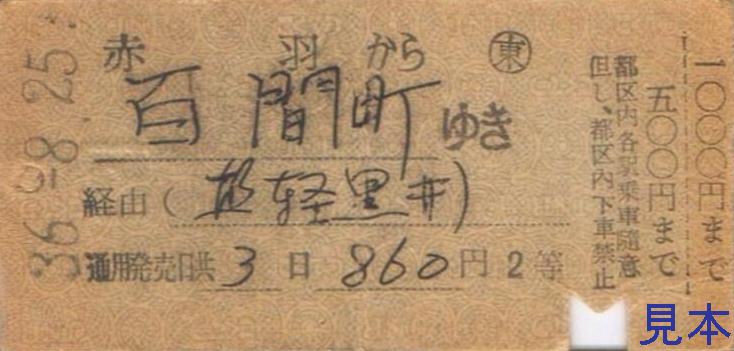 36.-8.25.
赤羽から ㊎東
百間町ゆき
経由(  軽黒井)
通用発売日共 3 日 860 円 2等
都区内各駅乗車随意
但し、都区内下車禁止
五〇〇円まで
一〇〇〇円まで
見本